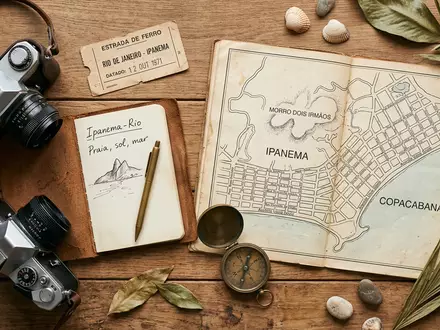 ESTRADA DE FERRO
RIO DE JANEIRO - IPANEMA
DATADO: 12 OUT 1971
Ipanema-Rio
Praia, sol, mar
MORRO DOIS IRMÃOS
IPANEMA
COPACABANA